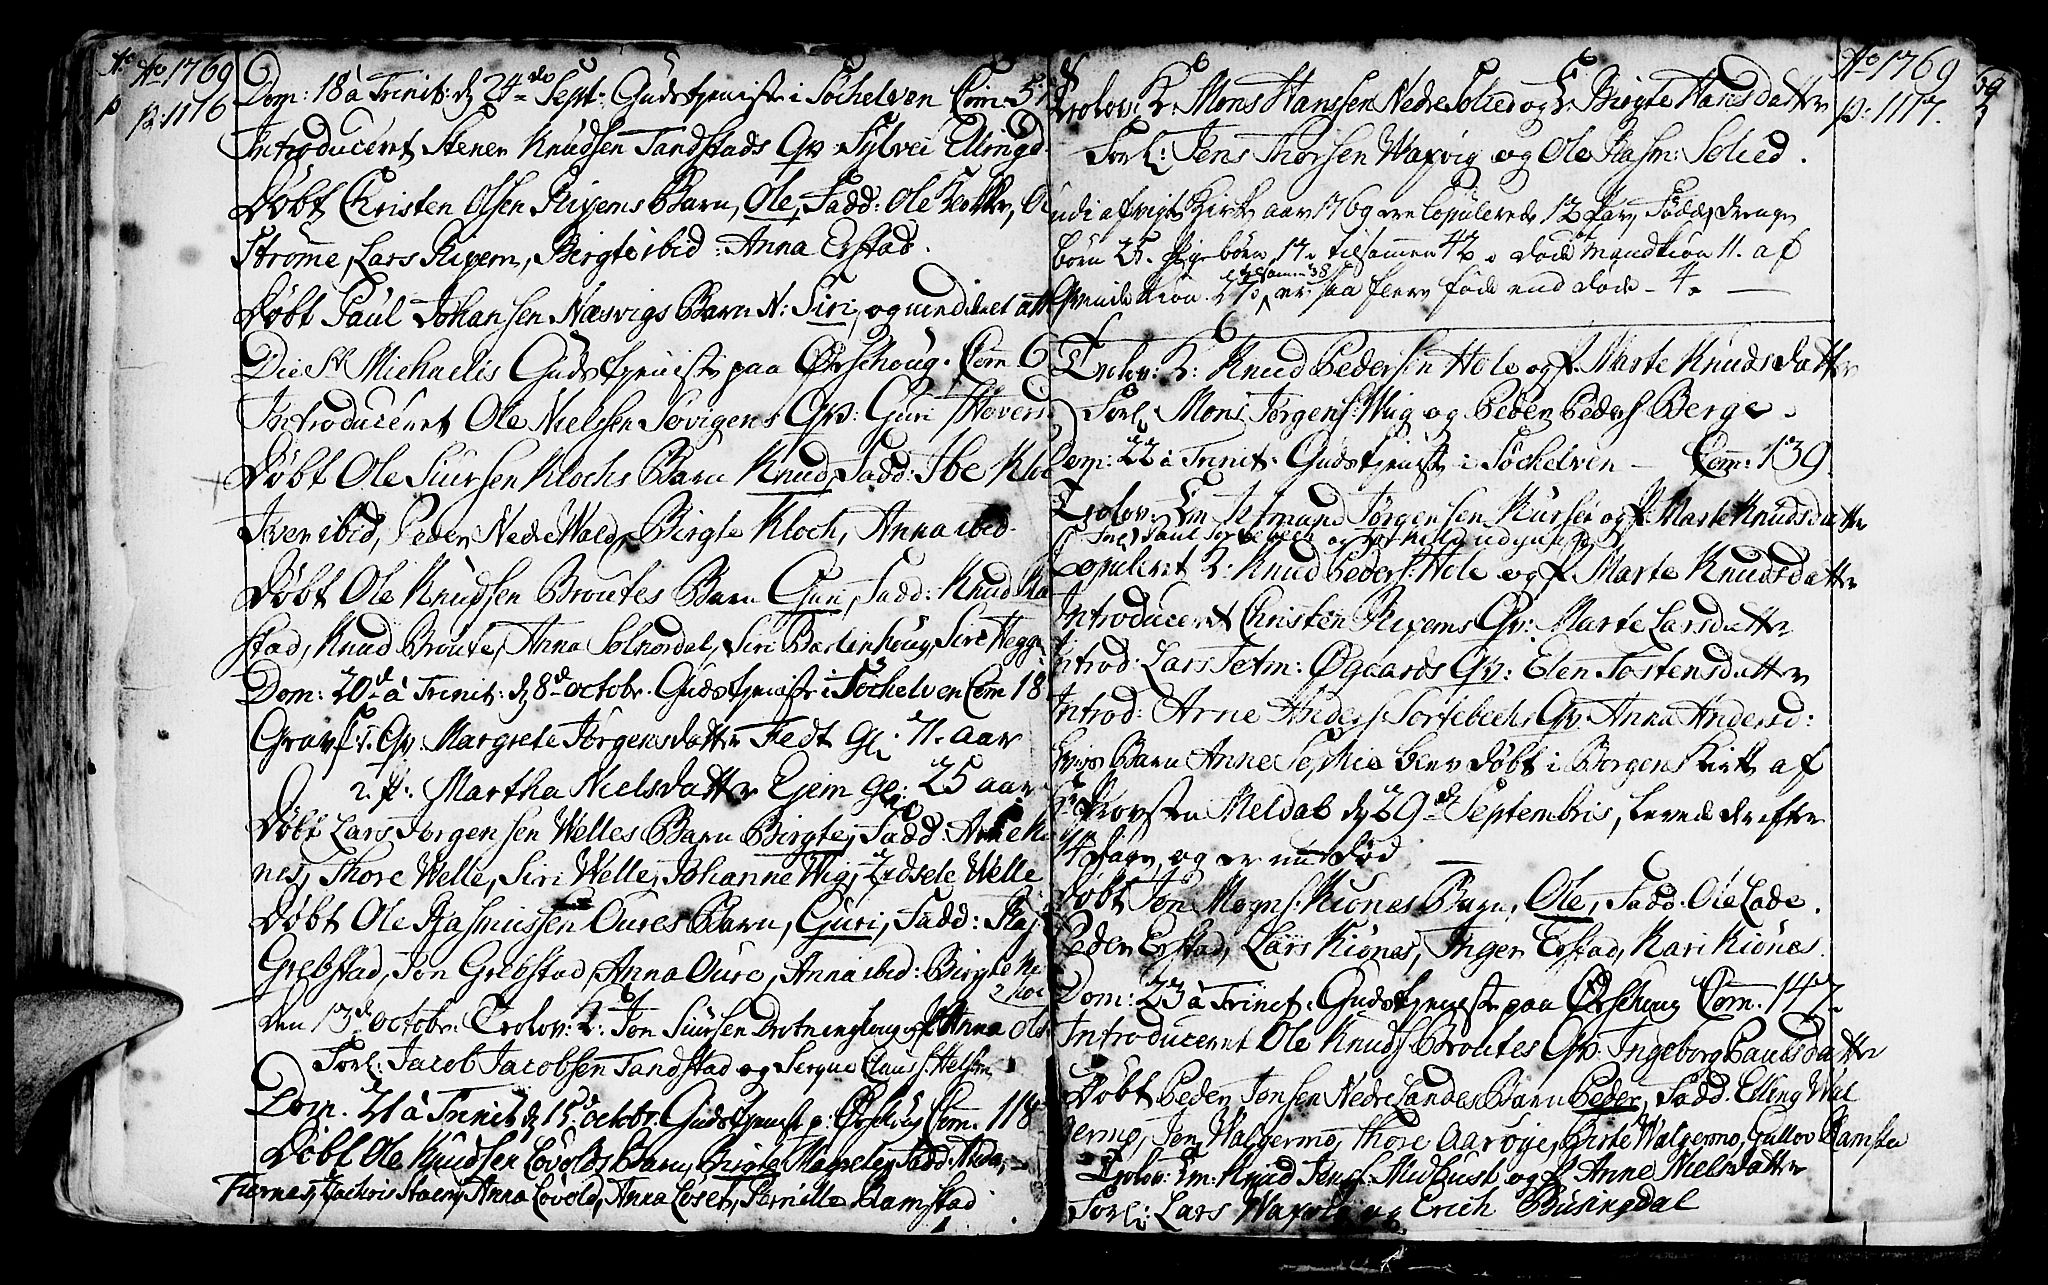 Ao 1769
p: 1116
Dom: 18 à Trinit: d 24de Sept: Gudstjeniste i Söchelven Com: 5
Introduceret Stener Knudsen Tandstads Qv: Sylvei Ellingd
Döbt Christen Olsen Rixems Barn, Ole, Fadd: Ole
Ströme, Lars Rixem, Birgte ibid: Anna Erstad.
Döbt Paul Johansen Næsvigs Barn N: Siri, og
Die St Michaelis Gudstjeniste paa Ørschoug. Com 6
Introduceret Ole Nielsen Sovigens Qv: Guri
Döbt Ole Siursen Klochs Barn Knud, Fadd: Ibe Klo
Iver ibid, Peder Nedre Wald, Birgte Kloch, Anna ibid.
Döbt Ole Knudsen Broutes Barn Guri, Fadd: Knud
stad, Knud Broute, Anna Solnordal, Siri Bastenhoug, Siri Hegge
Dom: 20de à Trinit: d 8de octobr. Gudstjeniste i Söchelven Com 18
Gravf: 1. Qv Margrete Jörgensdatter Fedt gl: 71. aar
2. P. Martha Nielsdatter Ejem gl: 25 aar
Döbt Lars Jörgensen Welles Barn Birgte, Fadd: Arne
nes, Thore Welle, Siri Welle, Johanne Wig, Zidsele Welle
Döbt Ole Rasmussen Oures Barn, Guri, Fadd: Ras:
Grebstad, Jon Grebstad, Anna Oure, Anna ibid: Birgte
den 13de octobr. Trolov: K: Jon Siursen Drotninghoug og P Anna Ols
Forl: Jacob Jacobsen Tandstad og Claus
Dom. 21 à Trinit d 15de octobr. Gudstjenist p: Ørschoug Com. 118
Döbt Ole Knudsen Lovolds Barn, Birgte Margrete, Fadd:
Furnes, Zacharis Anna Lovold, Anna Loset, Pernille Ramstad
Ao 1769
p: 1117.
Trolov: K: Mons Hanssen Nedre Solied og P Birgte Hansdatter
Forl: Jens Thorsen Waxvig og Ole Rasm: Solied.
udi afvigte Kirke aar 1769 ere Copulerede 12 par, Födde drenge
börn 25. Pigebörn 17. tilsammen 42. Döde af Mandkiön 11. af
Qvindekiön 27. tilsammen 38 er saa flere föde end döde - 4.
Trolov: K: Knud Pedersen Hole og P. Marte Knudsdatter
Forl: Mons Jörgens: Wiig og Peder Peders Berge.
Dom: 22 à Trinit: Gudstjenist i Söchelven - Com: 139
Trolov: Em Jetmund Jörgensen Kurset og P. Marte Knudsdatter
Copuleret K: Knud Peders: Hole og P. Marte Knudsdatter
Introduceret Christen Rixems Qv: Marte Larsdatter
Introd: Lars Jetm: Øgaards Qv: Elen Tostensdatter
Introd: Arne Anders: Sortebechs Qv: Anna Andersd:
hvis Barn Anne Sophie blev döbt i Borgens Kirke af
Hr Provsten Meldal d 29de Septembris, levede derefter
14 dage, og er nu död
Döbt Jon Mogns: Kiönes Barn, Ole, Fadd. Ole Lade.
Peder Erstad, Lars Kiönes, Inger Erstad, Kari Kiönes.
Dom: 23 à Trinit: Gudstjenist paa Ørschoug Com. 147
Introduceret Ole Knuds Broutes Qv: Ingeborg Paulsdatter
Döbt Peder Jensen Nedre Landes Barn Peder, Fadd. Elling Wal
germo, Jon Walgermo, Thore Aaröye, Birte Walgermo, Gullov Ramsta
Trolov: Em: Knud Jens: Midhust og P Anne Nielsdatter
Forl: Lars Waxvig og Erich Busingdal